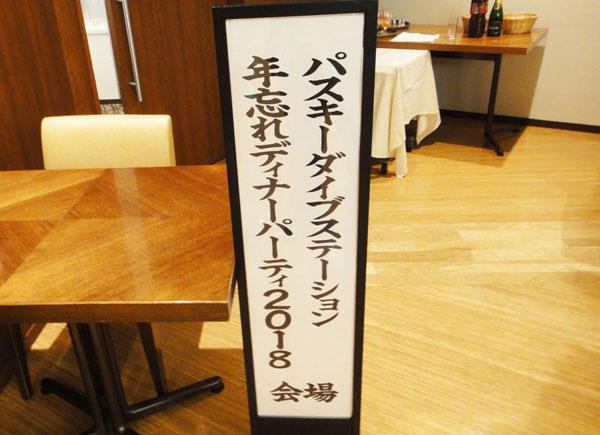 パスキーダイブステーション
年忘れディナーパーティ2018
会場